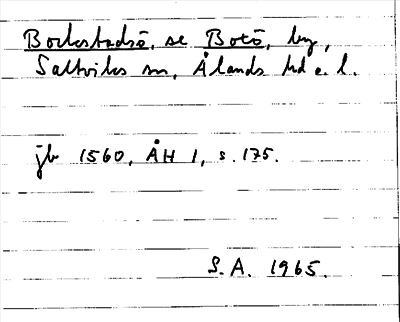 Bockstadsö, se Botö, by,
Saltviks sn, Ålands hd o. l.
jb 1560, ÅH 1, s. 175.
S. A. 1965.